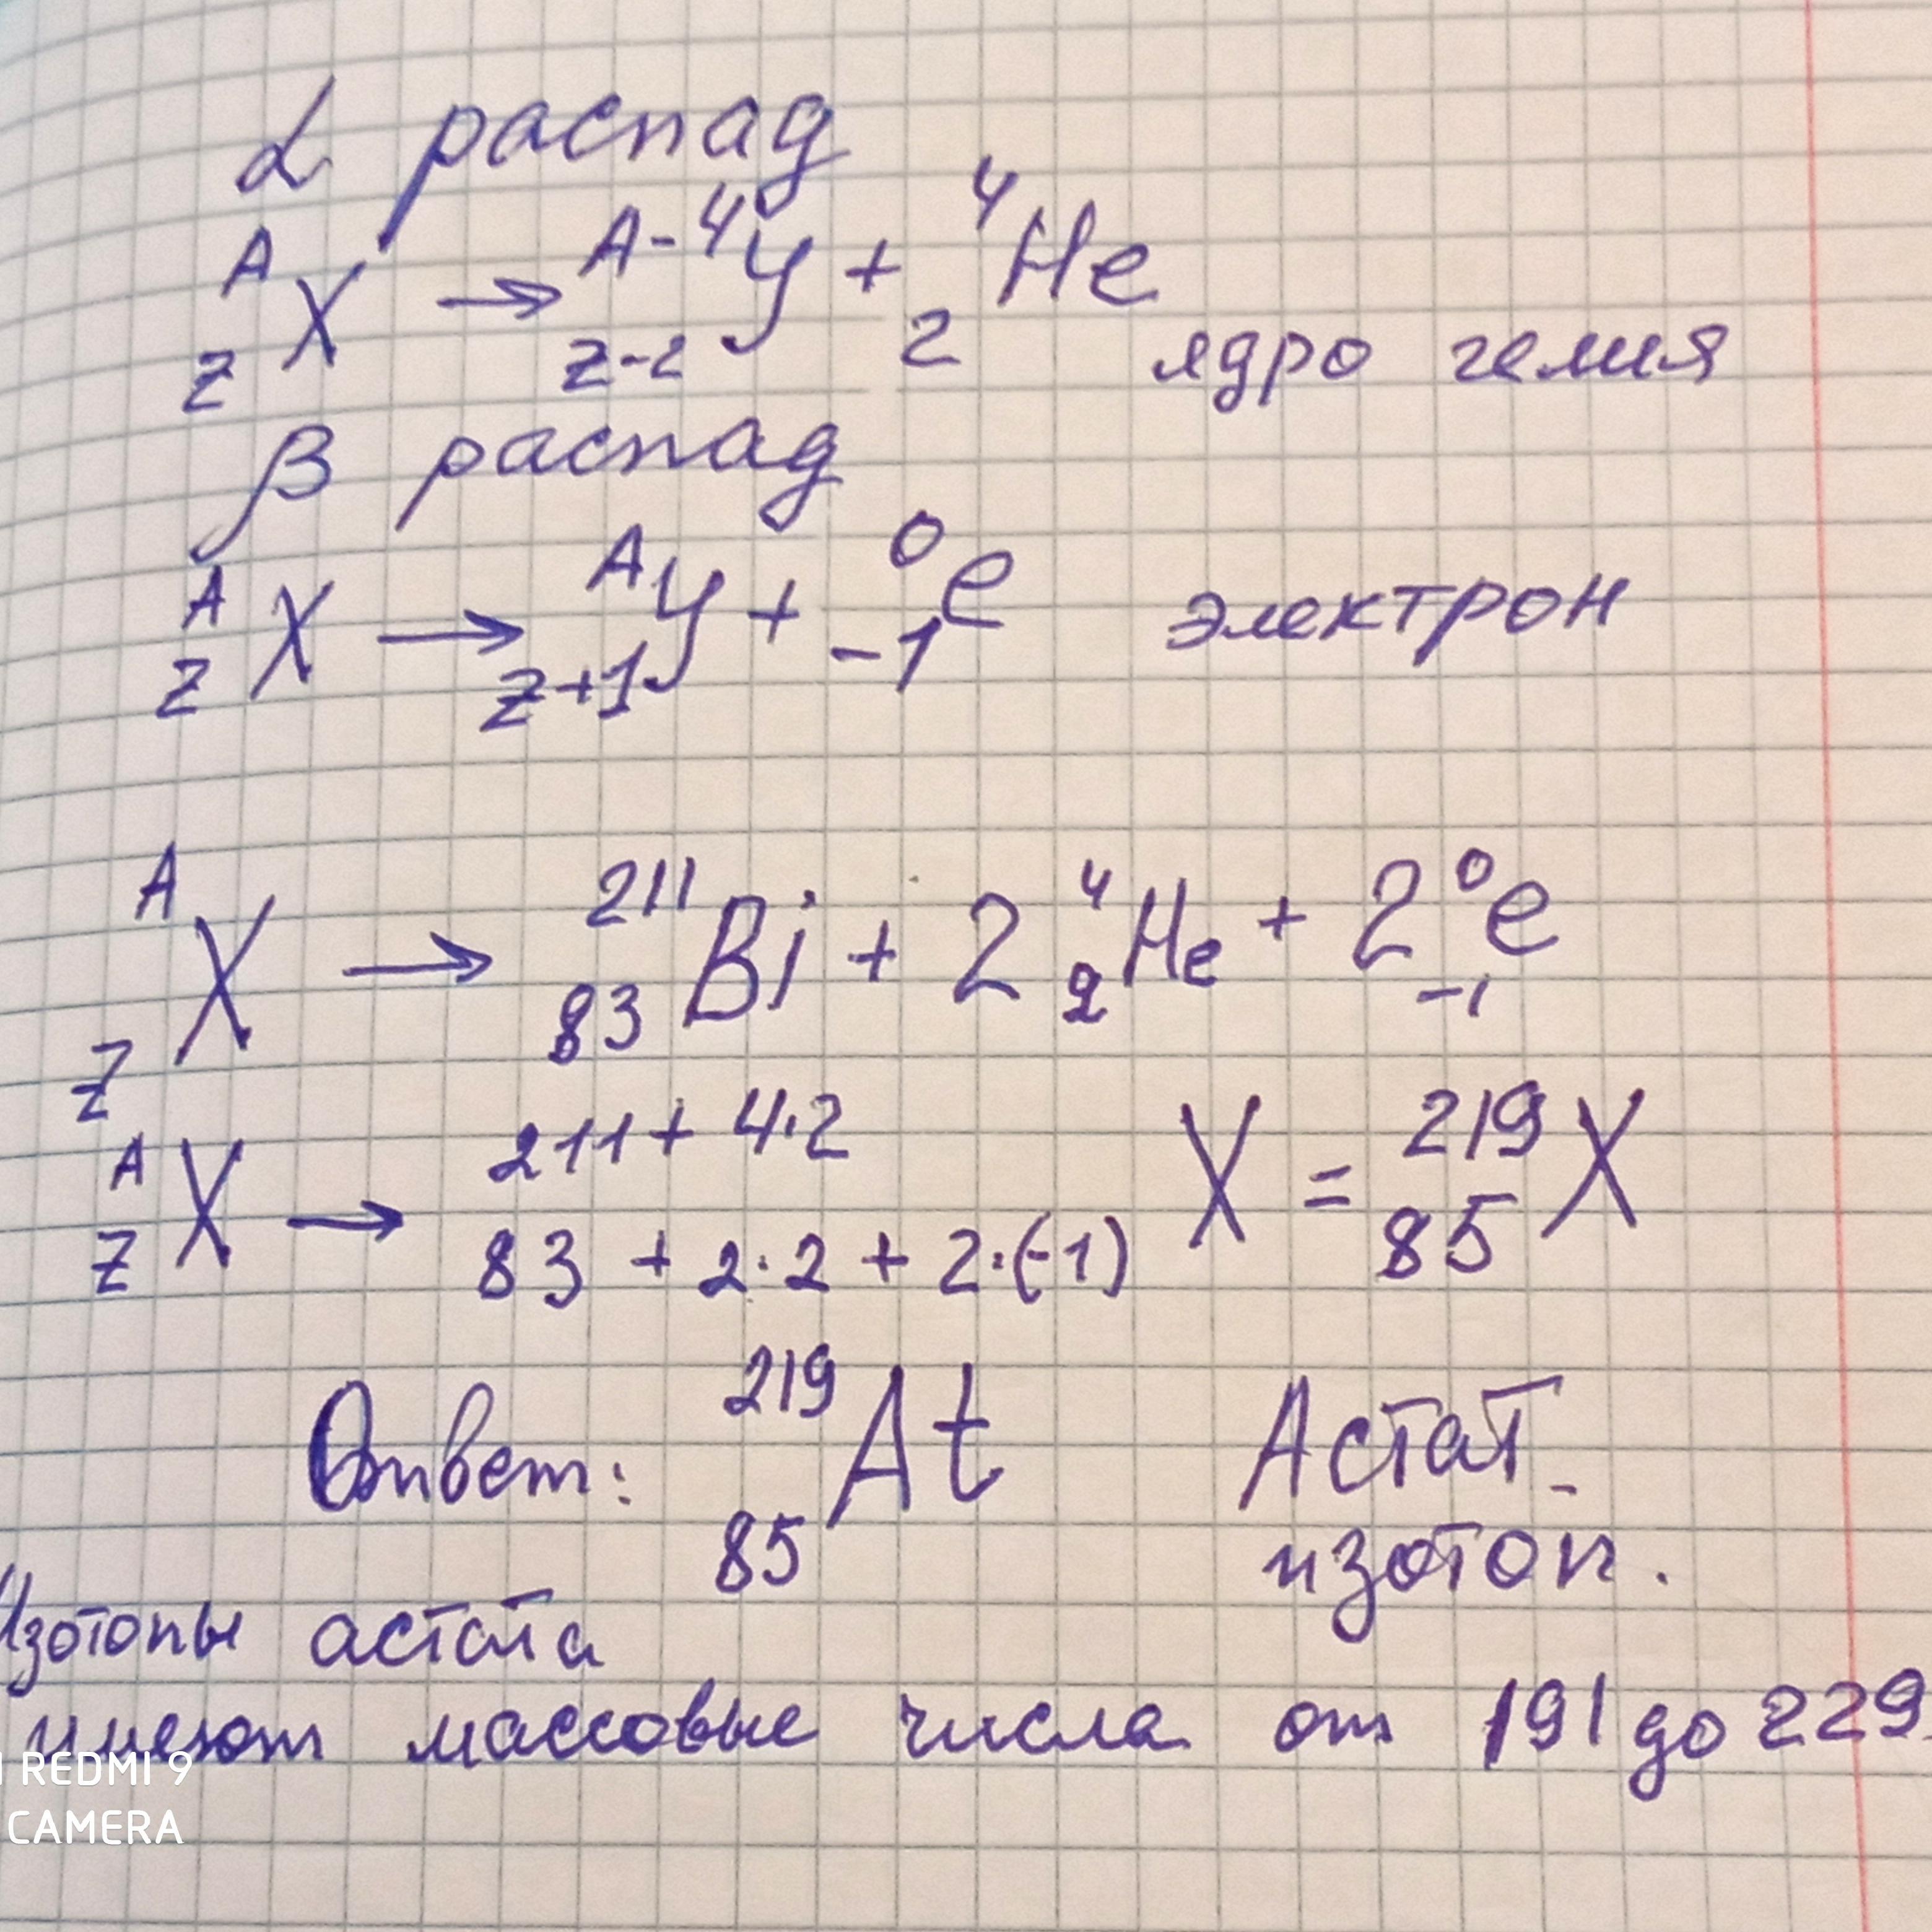 α распад
ᴬ_Z X → ᴬ⁻⁴_Z-2 У + ⁴_2 He ядро гелия
β распад
ᴬ_Z X → ᴬ_Z+1 У + ⁰_-1 e электрон
ᴬ_Z X → ²¹¹_83 Bi + 2 ⁴_2 He + 2 ⁰_-1 e
ᴬ_Z X → ²¹¹⁺⁴·²_83+2·2+2·(-1) X = ²¹⁹_85 X
Ответ: ²¹⁹_85 At Астат-
изотоп.
Изотопы астата
имеют массовые числа от 191 до 229.
REDMI 9
CAMERA